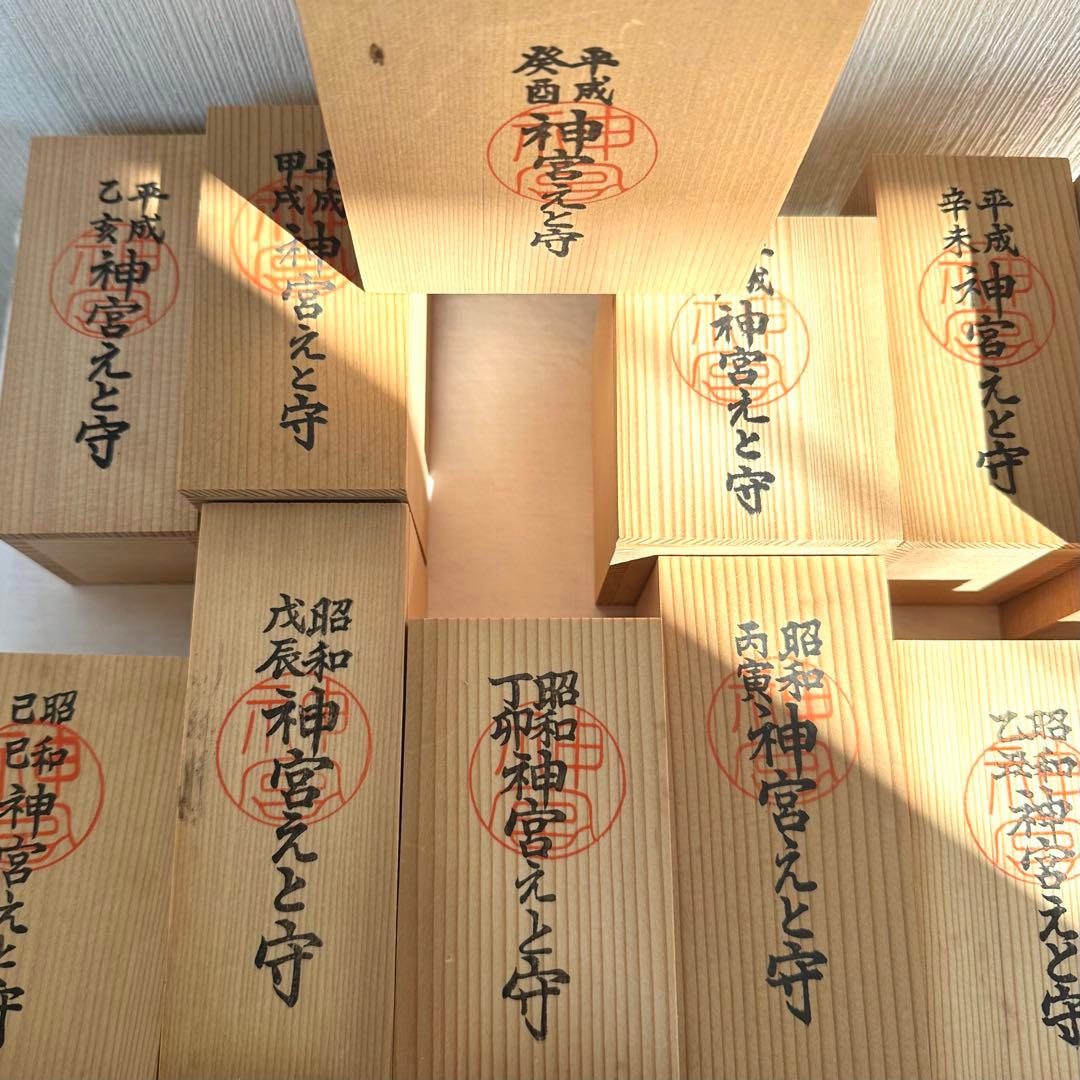 平成
癸酉
神宮えと守
平成
乙亥
神宮えと守
平成
甲戌
神宮えと守
成
神宮えと守
平成
辛未
神宮えと守
昭和
己巳
神宮えと守
昭和
戊辰
神宮えと守
昭和
丁卯
神宮えと守
昭和
丙寅
神宮えと守
昭和
乙丑
神宮えと守